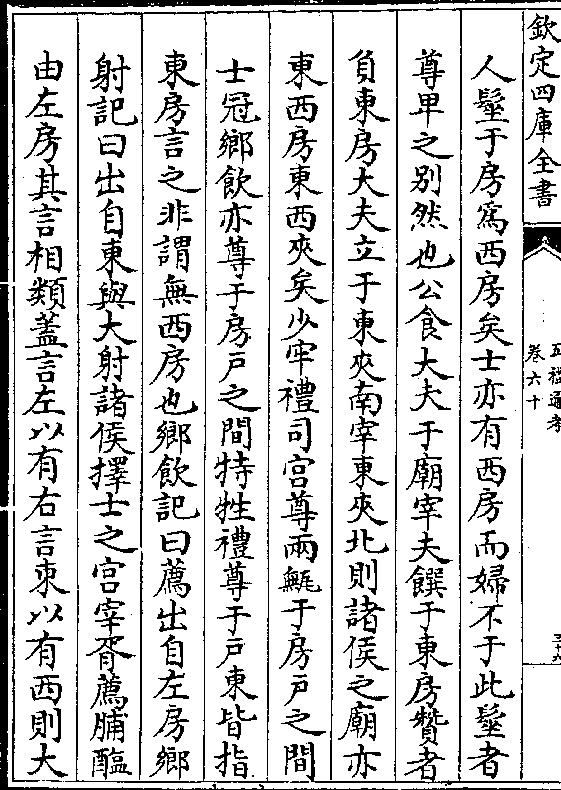 欽定四庫全書
五禮通考
卷六十
三十六
人髽于房為西房矣士亦有西房而婦不于此髽者
尊卑之别然也公食大夫于廟宰夫饌于東房贊者
負東房大夫立于東夾南宰東夾北則諸侯之廟亦
東西房東西夾矣少牢禮司宫尊兩甒于房戸之間
士冠鄉飲亦尊于房戸之間特牲禮尊于戸東皆指
東房言之非謂無西房也鄉飲記曰薦出自左房鄉
射記曰出自東與大射諸侯擇士之宫宰胥薦脯醢
由左房其言相類蓋言左以有右言東以有西則大